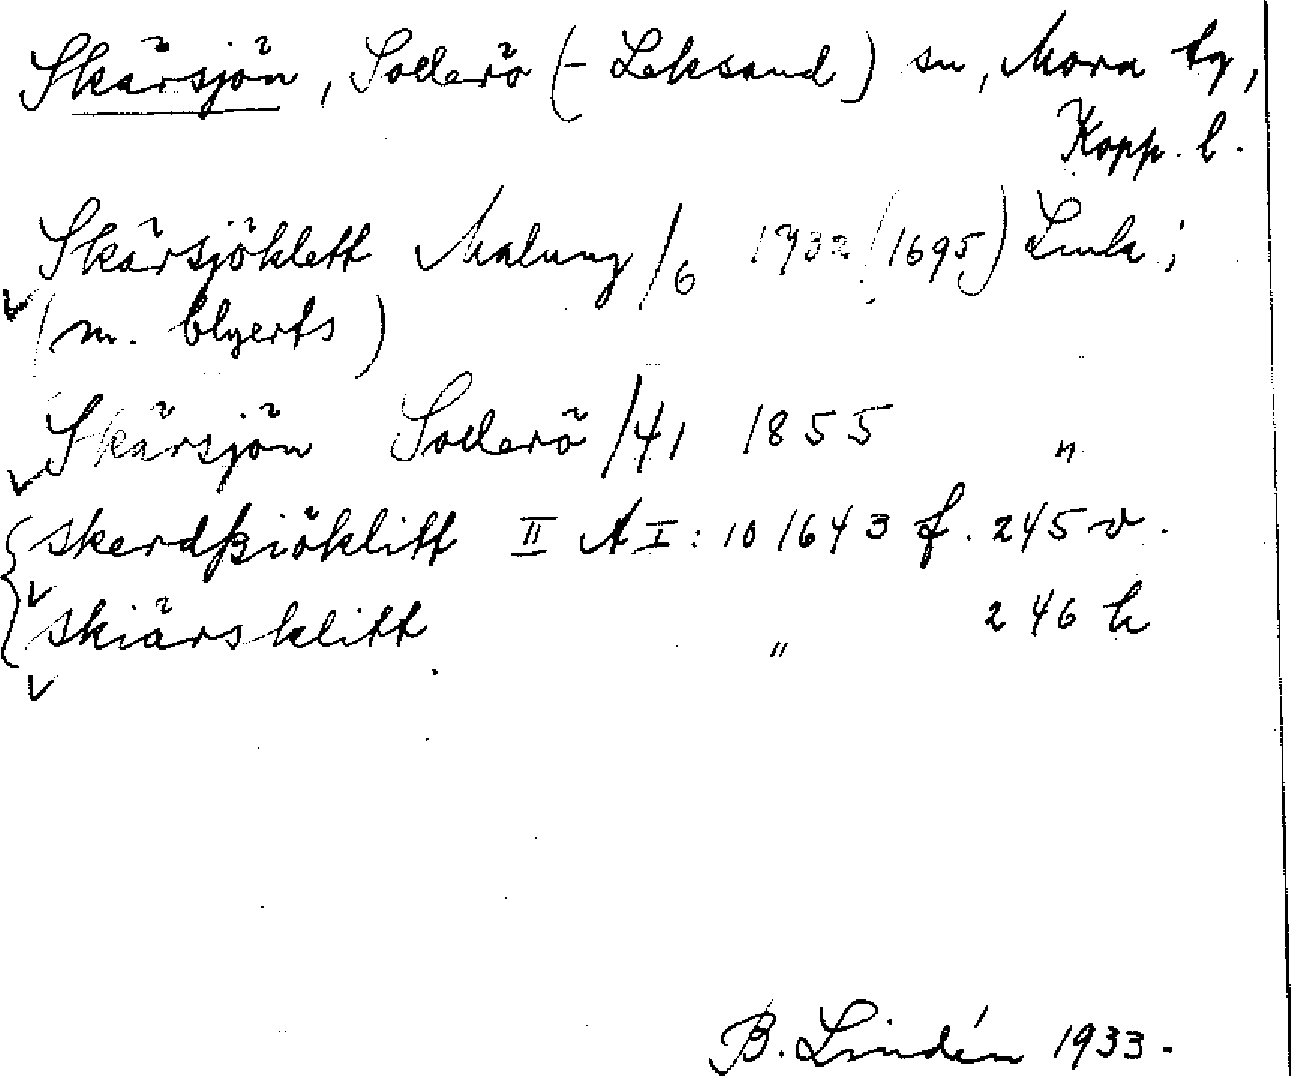 Skärsjön, Sollerö (- Leksand) sn, Mora tg,
Kopp. l.
Skärsjöklett Malung/6 1932 (1695) Lmla;
(m. blyerts)
Skärsjön Sollerö/41 1855 "
skerdßiöklitt II A I: 10 1643 f. 245 v.
skiärsklitt " 246 h
B. Lindén 1933.